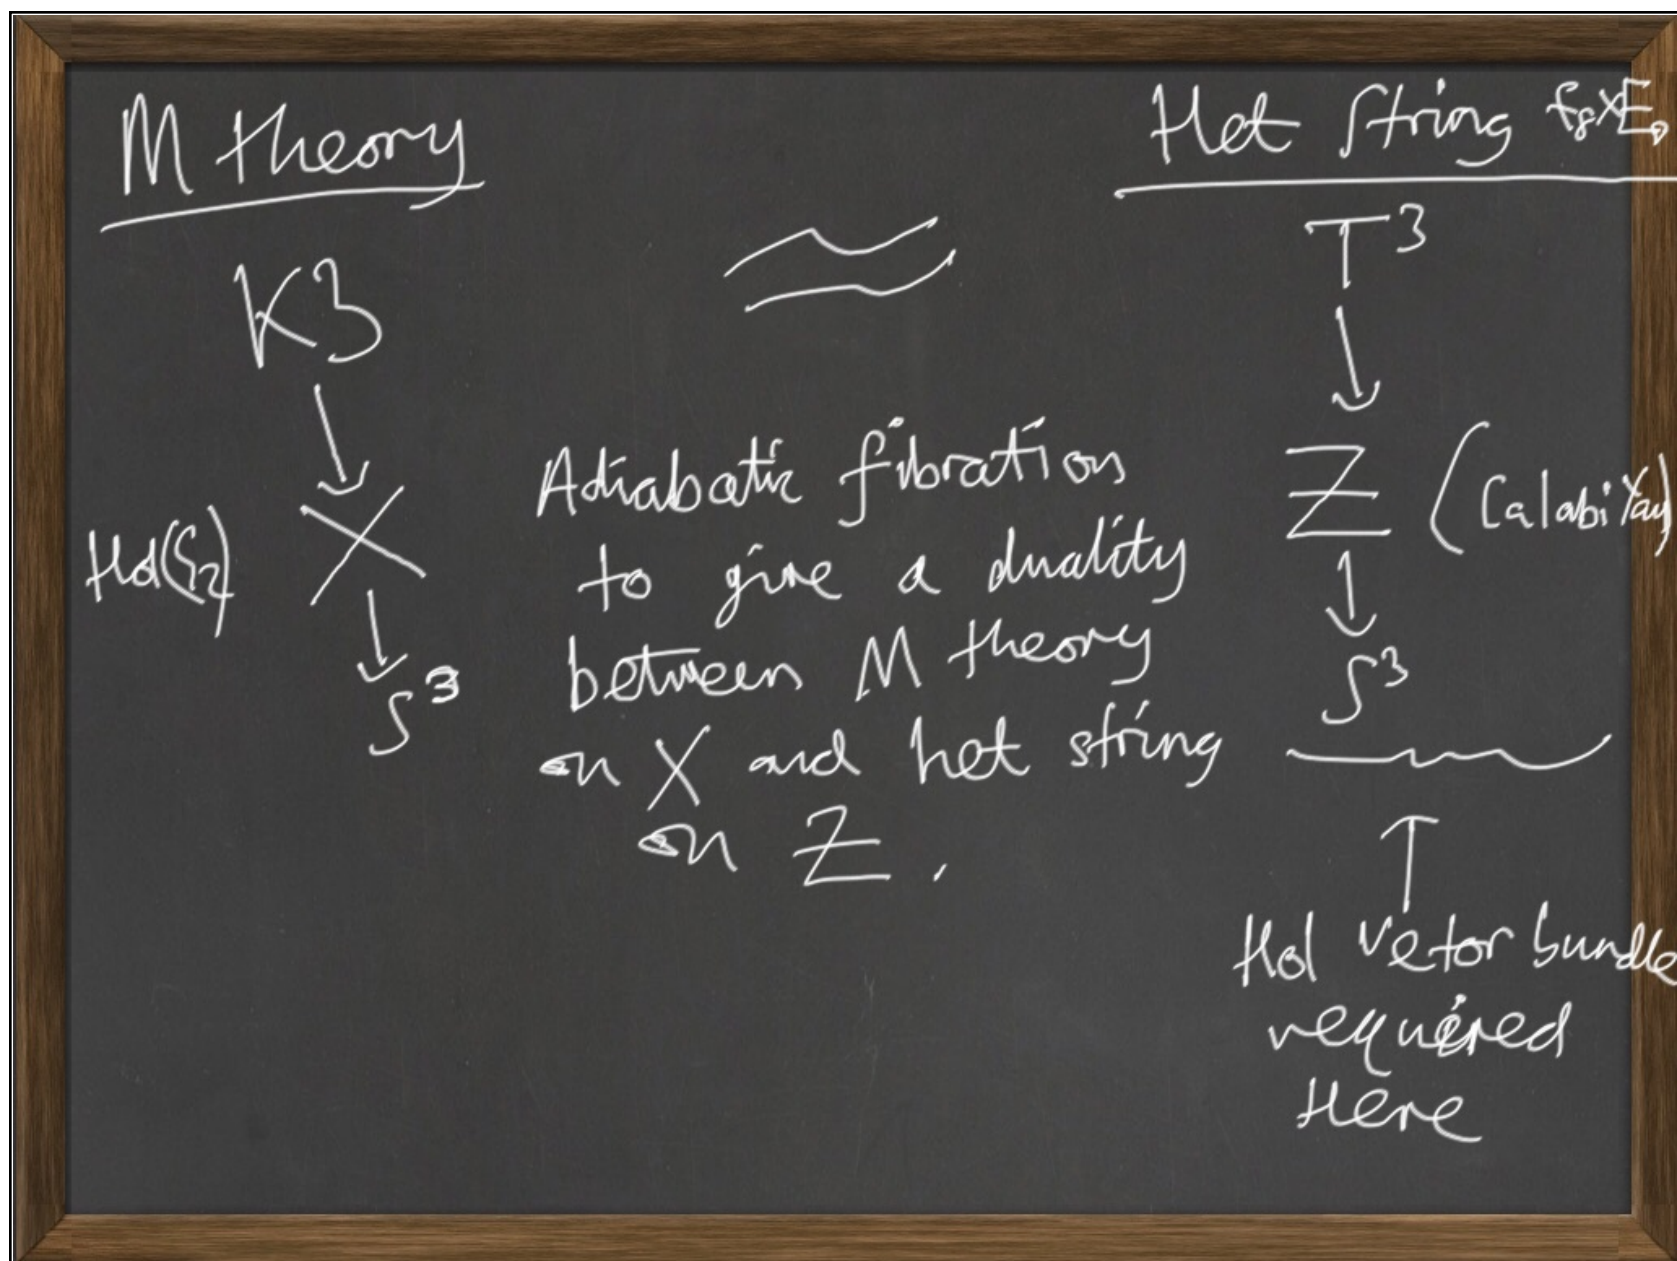 M theory
K3
↓
Hol(G₂) X
↓
S³
≈
Adiabatic fibration
to give a duality
between M theory
on X and het string
on Z.
Het String E₈×E₈
T³
↓
Z (Calabi Yau)
↓
S³
↑
Hol vetor bundle
required
Here